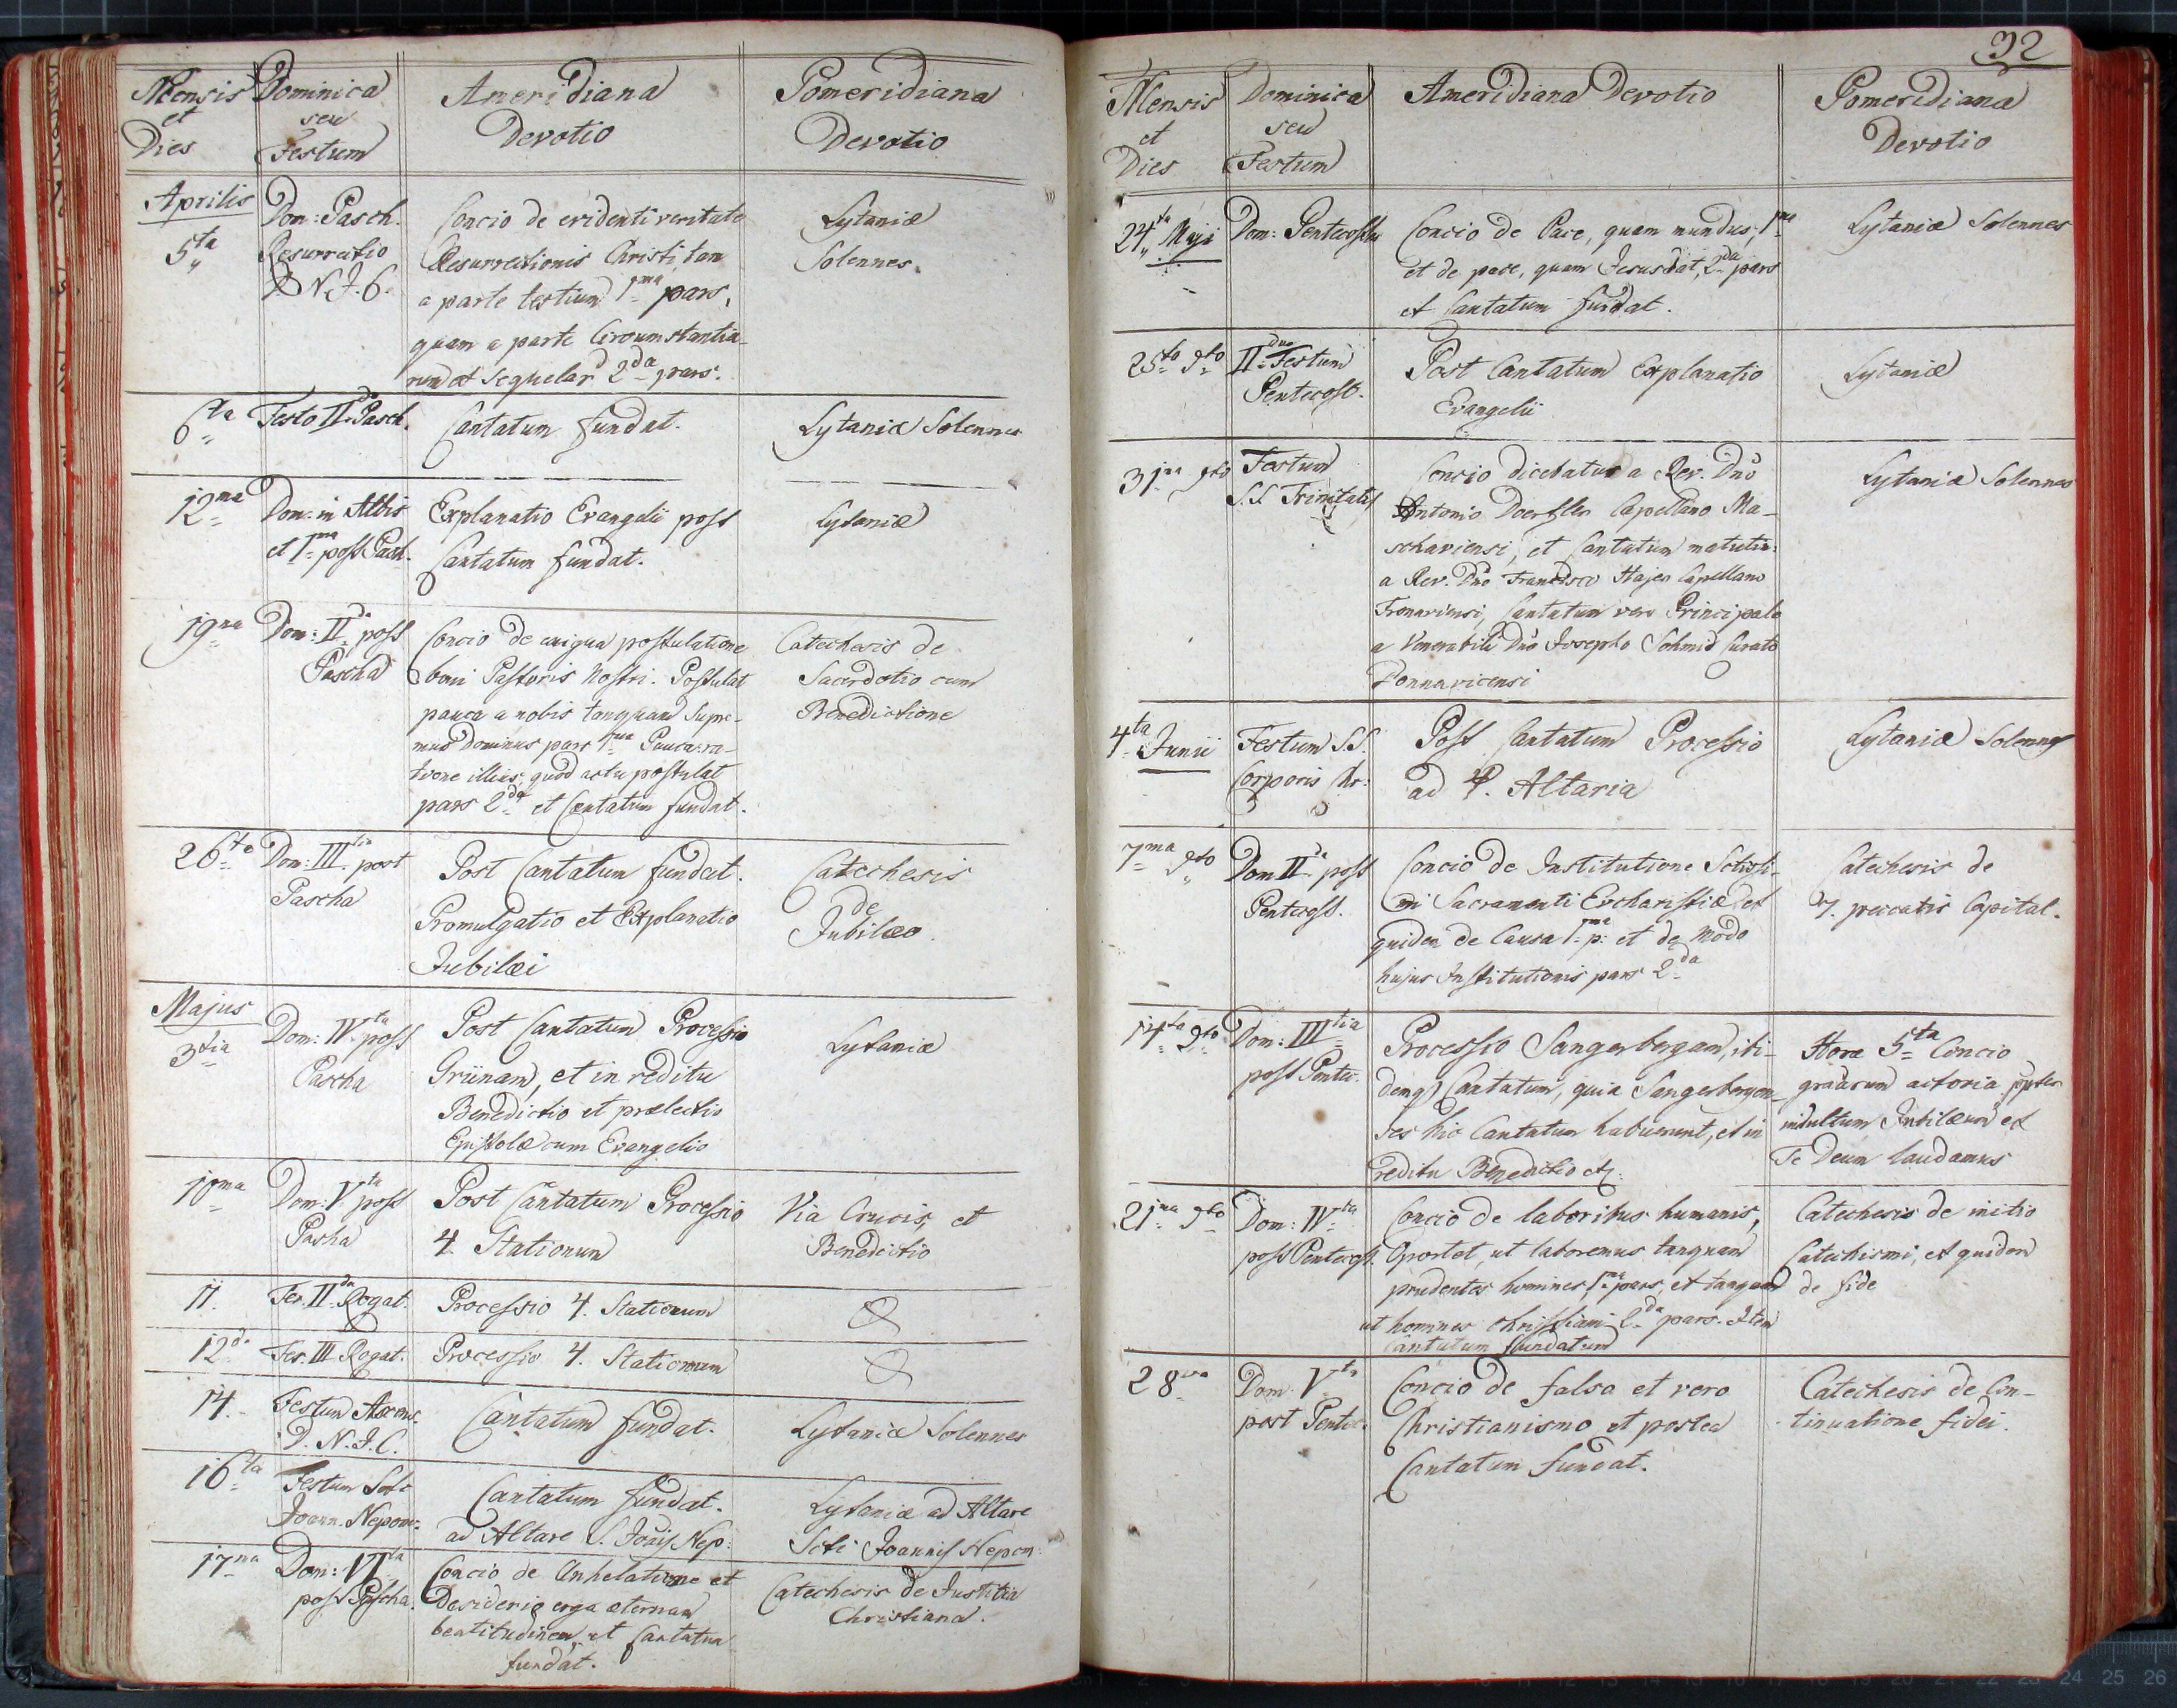 Mensis
et
Dies
Dominica
seu
Festum
Ameridiana
Devotio
Pomeridiana
Devotio
Aprilis
5ta
Dom: Pasch.
Resurrectio
D. N. J. C.
Concio de evidenti veritate
Resurrectionis Christi, tam
a parte testium 1ma pars,
quam a parte Circumstantia-
rum et sequelar 2da pars.
Lytaniæ
Solennes.
6ta
Festo IIdo Pasch.
Cantatum fundat.
Lytaniæ Solennes
12ma
Dom: in Albis
et 1ma post Pasch.
Explanatio Evangelii post
Cantatum fundat.
Lytaniæ
19na
Dom: IIda post
Pascha
Concio de exigua postulatione
boni Pastoris Nostri. Postulat
pauca a nobis tanquam Supre-
mus Dominus pars 1ma Pauca ra-
tione illius, quod actu postulat
pars 2da et Cantatum fundat.
Catechesis de
Sacerdotio cum
Benedictione
26ta
Dom: IIItia post
Pascha
Post Cantatum fundat.
Promulgatio et Explanatio
Jubilæi
Catechesis
de
Jubilæo.
Majus
3tia
Dom: IVta post
Pascha
Post Cantatum Processio
Grünam, et in reditu
Benedictio et prælectio
Epistolæ cum Evangelio
Lytaniæ
10ma
Dom: Vta post
Pascha
Post Cantatum Processio
4. Stationum
Via Crucis et
Benedictio
11.
Fer. IIda Rogat.
Processio 4. Stationum
12da
Fer. III Rogat.
Processio 4. Stationum
14.
Festum Ascens.
D. N. J. C.
Cantatum fundat.
Lytaniæ Solennes
16ta
Festum Scti
Joann. Nepom:
Cantatum fundat.
ad Altare S. Joñis Nep:
Lytaniæ ad Altare
Scti Joannis Nepom:
17ma
Dom: VIta
post Pascha.
Concio de Anhelatione et
Desiderio erga æternam
beatitudinem, et Cantatum
fundat.
Catechesis de Justitia
Christiana.
32
Mensis
et
Dies
Dominica
seu
Festum
Ameridiana Devotio
Pomeridiana
Devotio
24ta Maji
Dom: Pentecostes
Concio de Pace, quam mundus, 1ma
et de pace, quam Jesus dat, 2da pars
et Cantatum fundat.
Lytaniæ Solennes
25ta dto
IIdum Festum
Pentecost.
Post Cantatum Explanatio
Evangelii
Lytaniæ
31ma dto
Festum
S.S. Trinitatis
Concio dicebatur a Rev. Dno
Antonio Doerfler Capellano Ma-
schaviensi, et Cantatum matutin:
a Rev. Dno Francisco Hajer Capellano
Fronaviensi, Cantatum vero Principale
a Venerabili Dno Josepho Schmid Curato
Donnavicensi
Lytaniæ Solennes
4ta Junii
Festum S.S.
Corporis Chr:
Post Cantatum Processio
ad 4. Altaria
Lytaniæ Solennes
7ma dto
Dom IIda post
Pentecost.
Concio de Institutione Sctissi-
mi Sacramenti Eucharistiæ, et
quidem de Causa 1ma p: et de Modo
hujus Institutionis pars 2da
Catechesis de
7. peccatis Capital.
14ta dto
Dom: IIItia
post Pentec.
Processio Sangerbergam, ibi-
demq Cantatum, quia Sangerbergen-
ses hic Cantatum habuerunt, et in
reditu Benedictio etc:
Hora 5ta Concio
gratiarum actoria ppter
indultum Jubilæum et
Te Deum laudamus
21ma dto
Dom: IVta
post Pentecost.
Concio de laboribus humanis,
Oportet, ut laboremus tanquam
prudentes homines, 1ma pars, et tanquam
ut homines christiani 2da pars. Item
Cantatum fundatum
Catechesis de initio
Catechismi, et quidem
de fide
28va
Dom: Vta
post Pentec.
Concio de falso et vero
Christianismo et postea
Cantatum fundat.
Catechesis de Con-
tinuatione fidei.